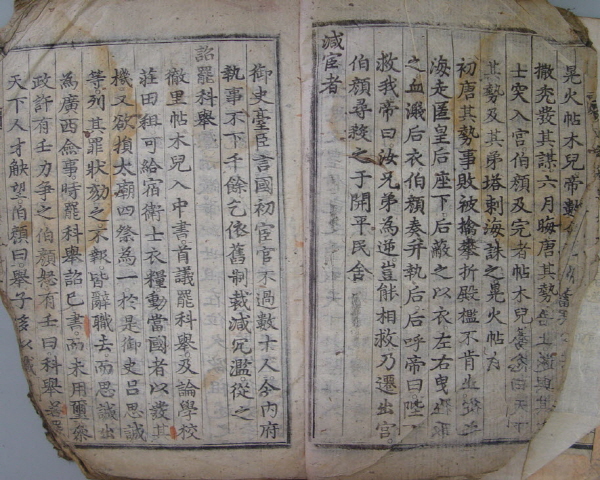 晃火帖木兒帝數
撒禿發其謀六月晦唐其勢
士突入宮伯顏及完者帖木兒
其勢及其弟塔剌海誅之晃火帖
初唐其勢事敗被擒攀折殿檻不肯出
海走匿皇后座下后蔽之以衣左右曳
之血濺后衣伯顏奏并執后后呼帝曰陛下
救我帝曰汝兄弟為逆豈能相救乃遷出宮
伯顏尋殺之于開平民舍
減宦者
御史臺臣言國初宦官不過數十人今內府
執事不下千餘乞依舊制裁減冗濫從之
詔罷科舉
徹里帖木兒入中書首議罷科舉及論學校
莊田租可給宿衛士衣糧動當國者以發其
機又欲損太廟四祭為一於是御史呂思誠
等列其罪狀劾之不報皆辭職去而思誠出
為廣西僉事時罷科舉詔已書而未用璽參
政許有壬力爭之伯顏怒有壬曰科舉若罷
天下人才觖望伯顏曰舉子多以